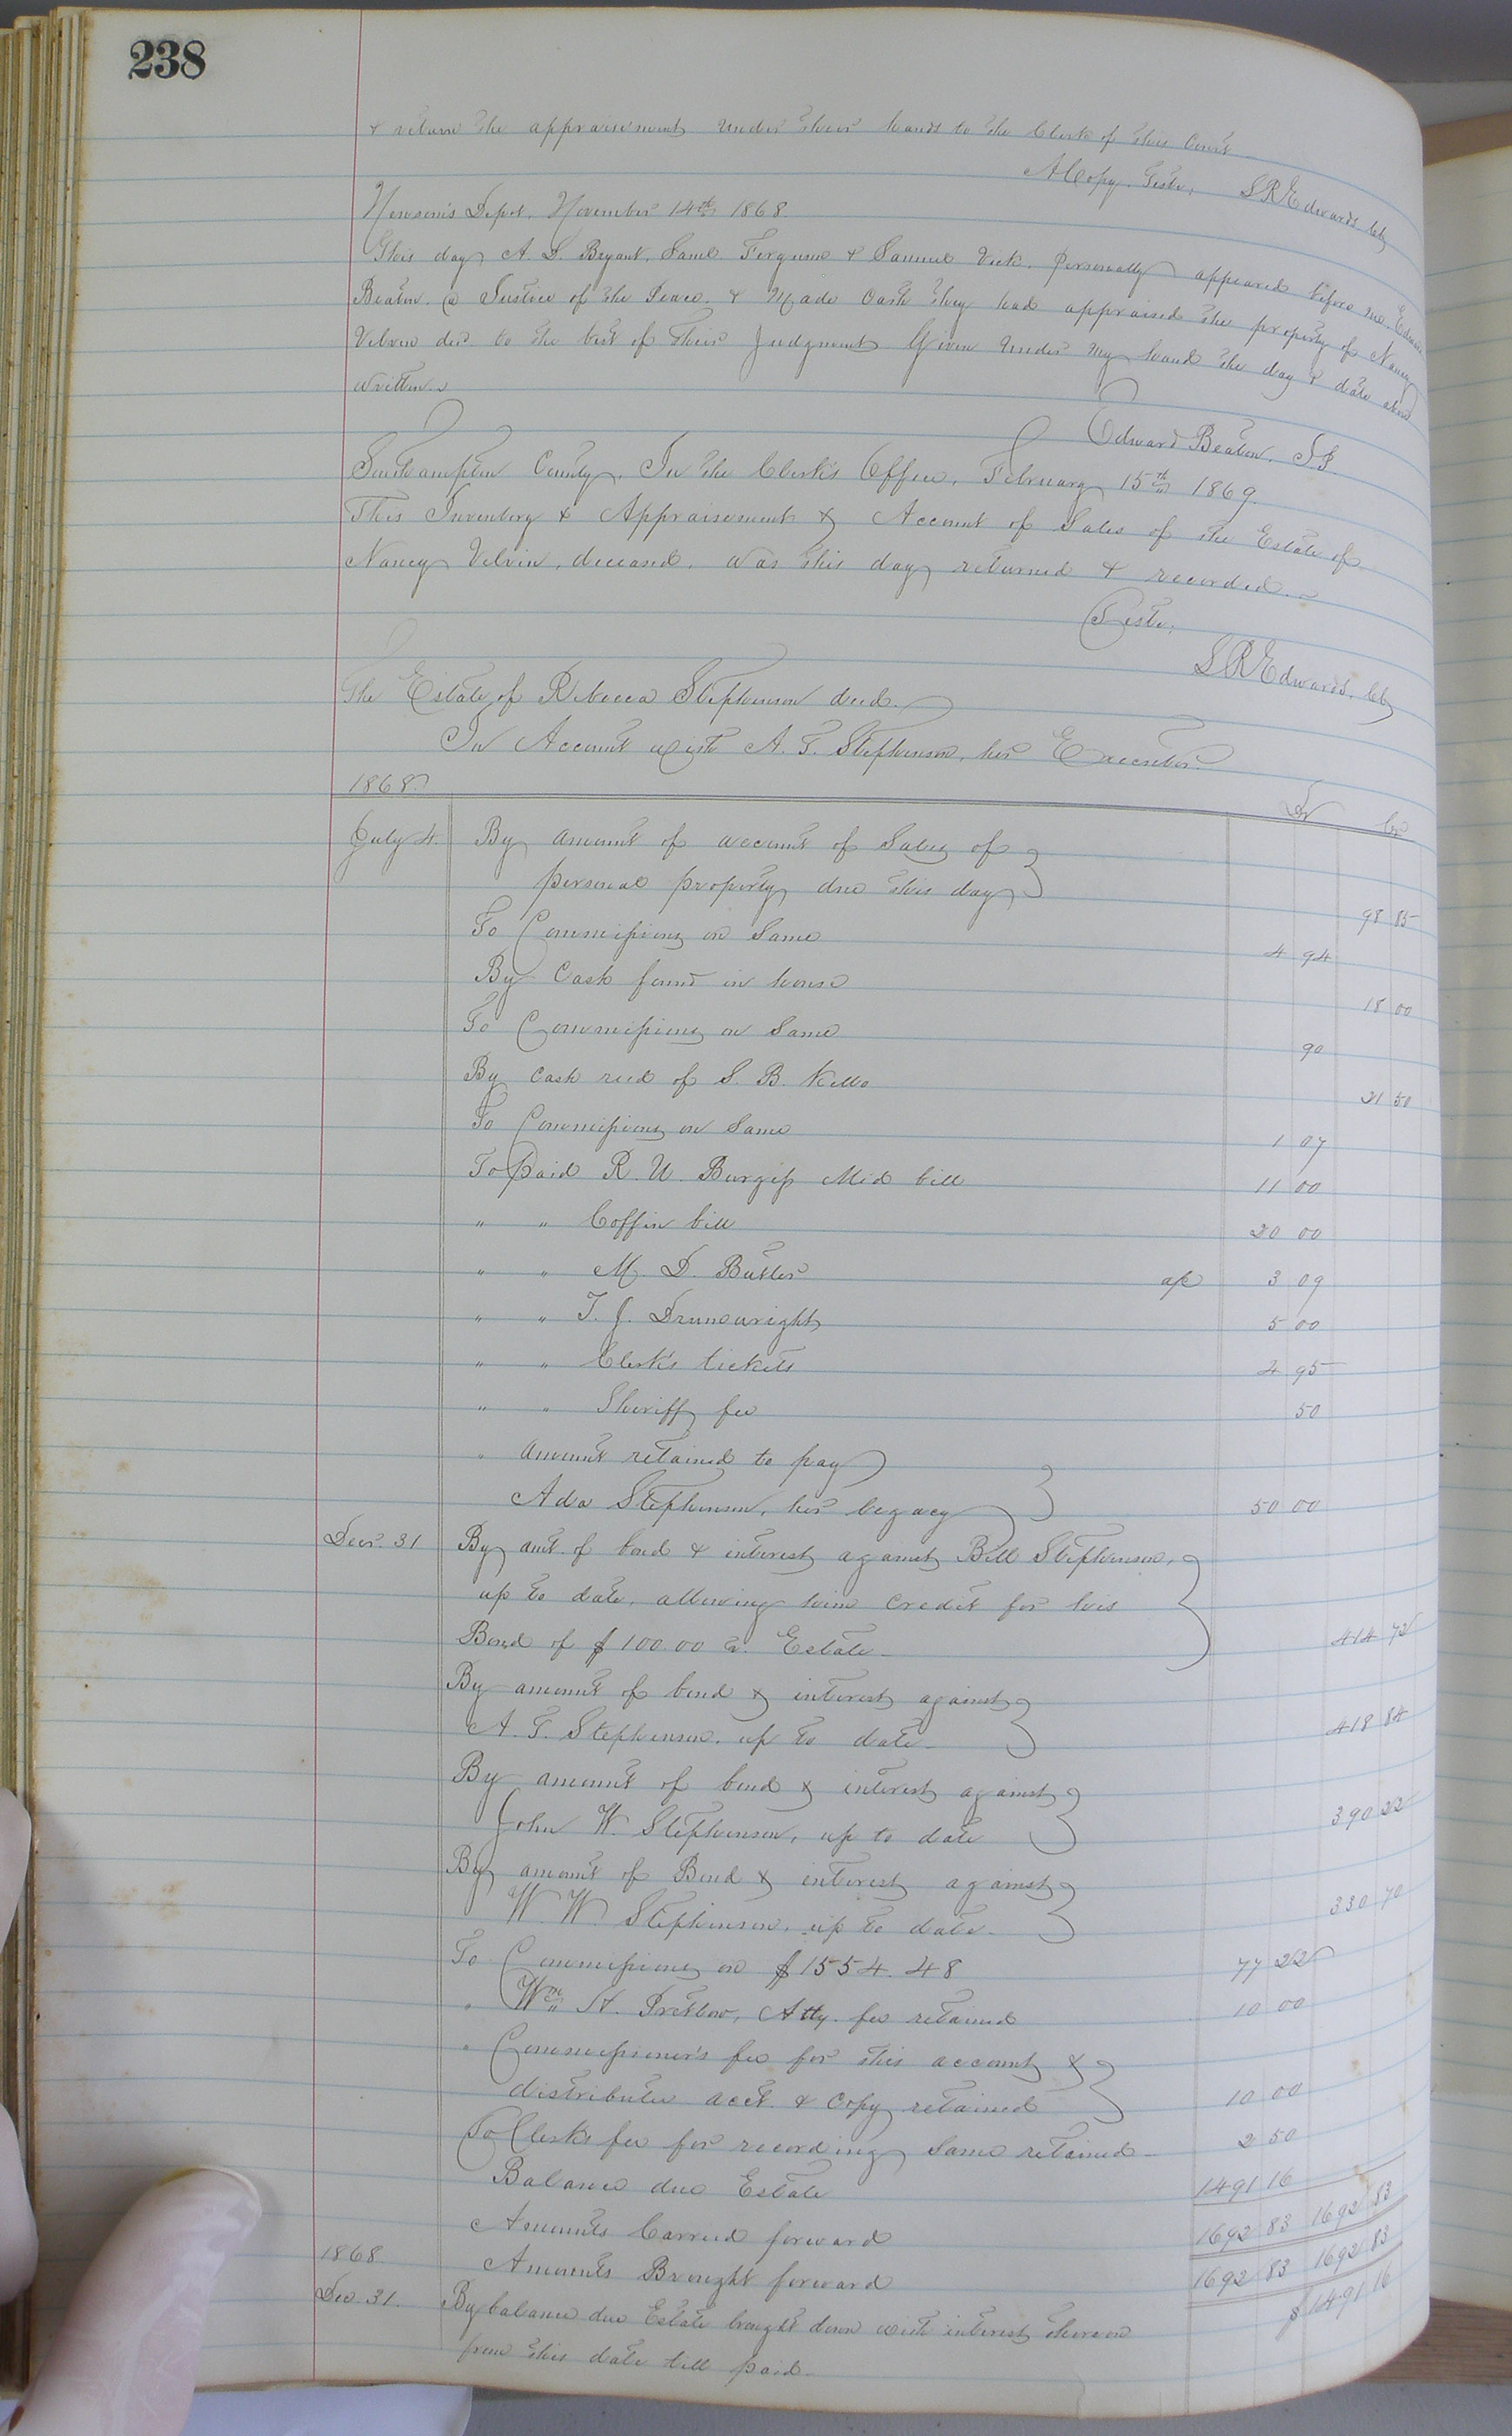 238
& return the appraisement under their hands to the Clerk of this Court
A Copy. Teste, L R Edwards Clk
Newsom's Depot, November 14th 1868.
This day A. D. Bryant, Saml Ferguson & Samuel Vick, personally appeared before me, Edward
Beaton, a Justice of the Peace, & made oath they had appraised the property of Nancy
Velvin decd to the best of their Judgment Given under my hand the day & date above
written.
Edward Beaton, J.P.
Southampton County, In the Clerk's Office, February 15th 1869.
This Inventory & Appraisement & Account of Sales of the Estate of
Nancy Velvin, deceased, was this day returned & recorded.
Teste,
L R Edwards, Clk
The Estate of Rebecca Stephenson decd.
In Account with A. T. Stephenson, her Executor
1868 Dr Cr
July 4. By amount of account of Sales of
personal property due this day 98 85
To Commissions on Same 4 94
By Cash found in house 18 00
To Commissions on Same 90
By Cash recd of S. B. Kello 21 50
To Commissions on Same 1 07
To paid R. U. Burgess Med bill 11 00
" " Coffin bill 20 00
" " M. D. Butler a/c 3 09
" " T. J. Drumwright 5 00
" " Clerk's tickets 4 95
" " Sheriff fee 50
" Amount retained to pay
Ada Stephenson, her legacy 50 00
Decr. 31 By amt. of bond & interest against Bill Stephenson,
up to date, allowing him Credit for his
Bond of $100.00 vs. Estate 414 72
By amount of bond & interest against
A. T. Stephenson, up to date 418 84
By amount of bond & interest against
John W. Stephenson, up to date 390 22
By amount of Bond & interest against
W. W. Stephenson, up to date 330 70
To Commissions on $1554.48 77 22
" Wm H. Pretlow, Atty. fee retained 10 00
" Commissioner's fee for this account &
distributee acct. & Copy retained 10 00
To Clerks fee for recording Same retained 2 50
Balance due Estate 1491 16
Amounts Carried forward 1692 83 1692 83
1868 Amounts Brought forward 1692 83 1692 83
Dec. 31. By balance due Estate brought down with interest thereon $1491 16
from this date till paid.